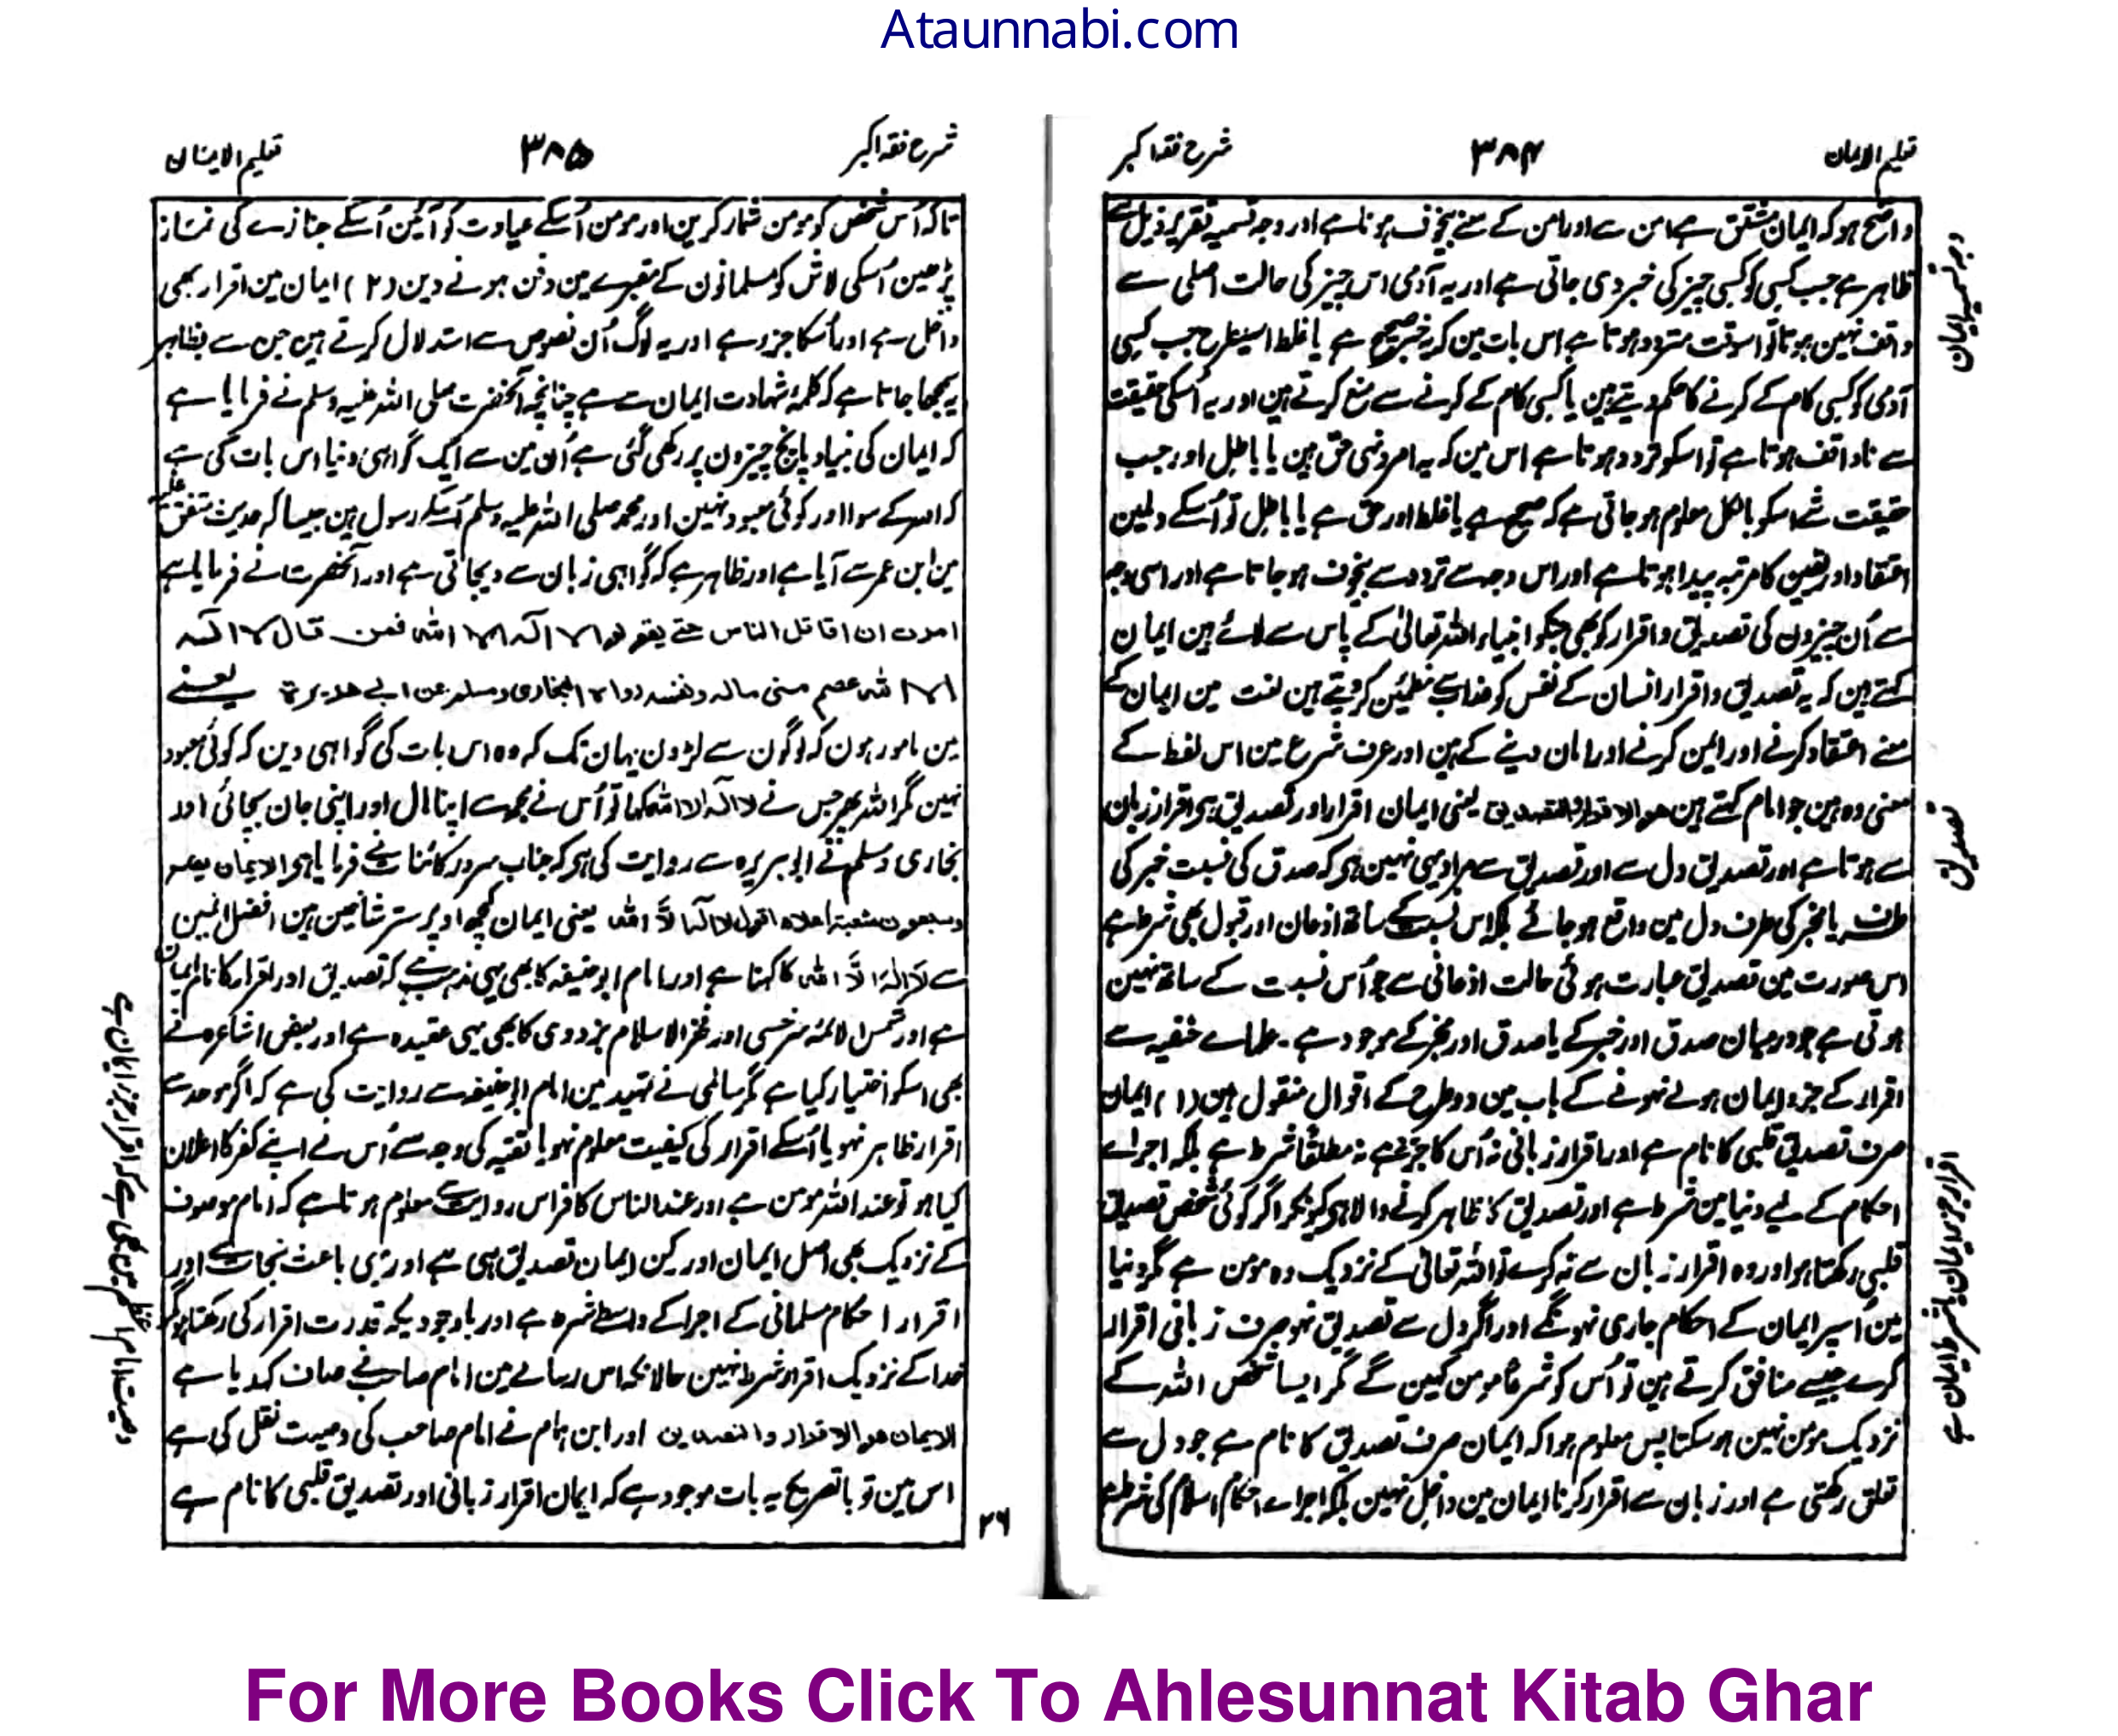 Ataunnabi.com
تعلیم الایمان ۳۸۴ شرح فقہ اکبر
واضح ہو کہ ایمان مشتق ہے امن سے اور امن کے معنے بیخوف ہونا ہے اور وجہ تسمیہ تقریر ذیل سے
ظاہر ہے جب کسی کو کسی چیز کی خبر دی جاتی ہے اور یہ آدمی اس چیز کی حالت اصلی سے
واقف نہین ہوتا تو اسوقت متردد ہوتا ہے اس بات مین کہ یہ خبر صحیح ہے یا غلط اسیطرح جب کسی
آدمی کو کسی کام کے کرنے کا حکم دیتے ہین یا کسی کام کے کرنے سے منع کرتے ہین اور یہ اُسکی حقیقت
سے ناواقف ہوتا ہے تو اسکو تردد ہوتا ہے اس مین کہ یہ امر و نہی حق ہین یا باطل اور جب
حقیقت شے اسکو بالکل معلوم ہو جاتی ہے کہ صحیح ہے یا غلط اور حق ہے یا باطل تو اُسکے دلمین
اعتقاد اور یقین کا مرتبہ پیدا ہوتا ہے اور اس وجہ سے تردد سے بیخوف ہو جاتا ہے اور اسی وجہ
سے اُن چیزون کی تصدیق و اقرار کو بھی جنکو انبیاء اللہ تعالیٰ کے پاس سے لائے ہین ایمان
کہتے ہین کہ یہ تصدیق و اقرار انسان کے نفس کو عذاب سے مطمئن کر دیتے ہین لغت مین ایمان کے
معنے اعتقاد کرنے اور ایمن کرنے اور امان دینے کے ہین اور عرف شرع مین اس لفظ کے
معنی وہ ہین جو امام کہتے ہین ھو الاقرار والتصدیق یعنی ایمان اقرار اور تصدیق ہی اقرار زبان
سے ہوتا ہے اور تصدیق دل سے اور تصدیق سے مراد یہی نہین ہی کہ صدق کی نسبت خبر کی
طرف یا مخبر کی طرف دل مین واقع ہو جائے بلکہ اس نسبت کے ساتھ اذعان اور قبول بھی شرط ہے
اس صورت مین تصدیق عبارت ہوئی حالت اذعانی سے جو اُس نسبت کے ساتھ نہین
ہوتی ہے جو درمیان صدق اور خبر کے یا صدق اور مخبر کے موجود ہے ۔ علماے حنفیہ سے
اقرار کے جزو ایمان ہونے نہونے کے باب مین دو طرح کے اقوال منقول ہین (۱) ایمان
صرف تصدیق قلبی کا نام ہے اور اقرار زبانی نہ اُس کا جز ہے نہ مطلقًا شرط ہے بلکہ اجراے
احکام کے لیے دنیا مین شرط ہے اور تصدیق کا ظاہر کرنے والا ہی کیونکر اگر کوئی شخص تصدیق
قلبی رکھتا ہو اور وہ اقرار زبان سے نہ کرے تو اللہ تعالی کے نزدیک وہ مومن ہے مگر دنیا
مین اُسپر ایمان کے احکام جاری نہونگے اور اگر دل سے تصدیق نہو صرف زبانی اقرار
کرے جیسے منافق کرتے ہین تو اُس کو شرعًا مومن کہین گے مگر ایسا شخص اللہ کے
نزدیک مومن نہین ہو سکتا پس معلوم ہوا کہ ایمان صرف تصدیق کا نام ہے جو دل سے
تعلق رکھتی ہے اور زبان سے اقرار کرنا ایمان مین داخل نہین بلکہ اجراے احکام اسلام کی شرط ہے
وجہ تسمیہ ایمان
تصدیق
اقرار جزو ایمان یا شرط ایمان ہے
شرح فقہ اکبر ۳۸۵ تعلیم الایمان
تاکہ اُس شخص کو مومن شمار کرین اور مومن اُسکے عیادت کو آئین اُسکے جنازے کی نماز
پڑھین اُسکی لاش کو مسلمانون کے مقبرے مین دفن ہونے دین (۲) ایمان مین اقرار بھی
داخل ہے اور اُسکا جزو ہے اور یہ لوگ اُن نصوص سے استدلال کرتے ہین جن سے بظاہر
یہ سمجھا جاتا ہے کہ کلمۂ شہادت ایمان سے ہے چنانچہ آنحضرت صلی اللہ علیہ وسلم نے فرمایا ہے
کہ ایمان کی بنیاد پانچ چیزون پر رکھی گئی ہے اُن مین سے ایک گواہی دینا اس بات کی ہے
کہ اللہ کے سوا اور کوئی معبود نہین اور محمد صلی اللہ علیہ وسلم اُسکے رسول ہین جیسا کہ حدیث متفق علیہ
مین ابن عمر سے آیا ہے اور ظاہر ہے کہ گواہی زبان سے دیجاتی ہے اور آنحضرت نے فرمایا ہے
امرت ان اقاتل الناس حتے یقولوا لا الہ الا اللہ فمن قال لا الہ
الا اللہ عصم منی مالہ ونفسہ رواہ البخاری ومسلم عن ابی ھریرۃ یعنے
مین مامور ہون کہ لوگون سے لڑون یہان تک کہ وہ اس بات کی گواہی دین کہ کوئی معبود
نہین مگر اللہ پھر جس نے لا الہ الا اللہ کہا تو اُس نے مجھ سے اپنا مال اور اپنی جان بچائی اور
بخاری و مسلم نے ابو ہریرہ سے روایت کی ہی کہ جناب سرور کائنات نے فرمایا ہی الایمان بضع
وسبعون شعبۃ اعلاہ اقول لا الہ الا اللہ یعنی ایمان کچھ اوپر ستر شاخین ہین افضل انمین
سے لا الہ الا اللہ کا کہنا ہے اور امام ابوحنیفہ کا بھی یہی مذہب ہے کہ تصدیق اور اقرار کا نام ایمان
ہے اور شمس الائمہ سرخسی اور فخر الاسلام بزدوی کا بھی یہی عقیدہ ہے اور بعض اشاعرہ نے
بھی اسکو اختیار کیا ہے مگر سالمی نے تمہید مین امام ابوحنیفہ سے روایت کی ہے کہ اگر موحد سے
اقرار ظاہر نہو یا اُسکے اقرار کی کیفیت معلوم نہو یا تقیہ کی وجہ سے اُس نے اپنے کفر کا اعلان
کیا ہو تو عند اللہ مومن ہے اور عند الناس کافر اس روایت سے معلوم ہوتا ہے کہ امام موصوف
کے نزدیک بھی اصل ایمان اور رکن ایمان تصدیق ہی ہے اور یہی باعث نجات ہے اور
اقرار احکام مسلمانی کے اجرا کے واسطے شرط ہے اور باوجودیکہ قدرت اقرار کی رکھتا ہو مگر
خدا کے نزدیک اقرار شرط نہین حالانکہ اس رسالے مین امام صاحب نے صاف کہدیا ہے
الایمان ھو الاقرار والتصدیق اور ابن ہمام نے امام صاحب کی وصیت نقل کی ہے
اس مین تو باتصریح یہ بات موجود ہے کہ ایمان اقرار زبانی اور تصدیق قلبی کا نام ہے
وصیت امام اعظم مین بھی ہے کہ اقرار جزو ایمان ہے
۲۶
For More Books Click To Ahlesunnat Kitab Ghar